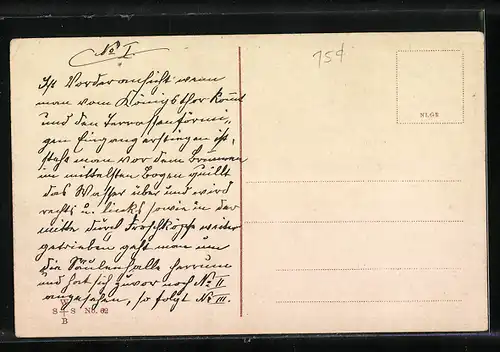 No I.
75¢
Ist Vorderansicht wenn
man vom Königsthor komt
und den Terrassenförmi,
gen Eingang erstiegen ist,
steht man vor dem Brunnen
im mittelsten Bogen quillt
das Wasser über und wird
rechts u. links sowie in der
mitte durch Froschköpfe weiter
getrieben geht man um
die Säulenhalle herrum
und hat sich zuvor noch No II
angesehen, so folgt No III.
NLGB
W
S S No. 62
B